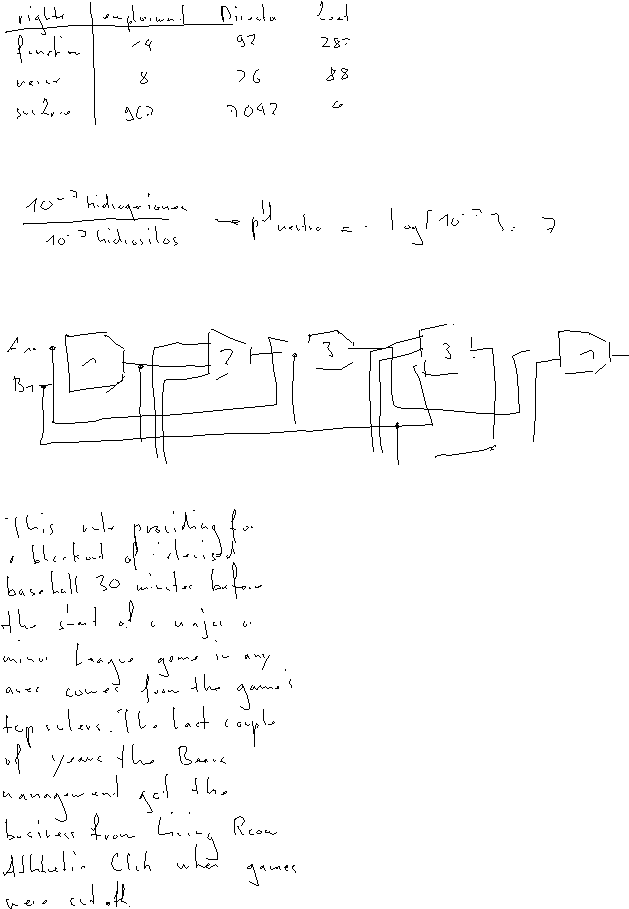 rights employment Director
function 92
8 76 88
7042
10⁻⁷ hidrogeniones
10⁻⁷ hidroxilos → pH neutro = - log[10⁻⁷] 7
A
B
1 2 3 3 1
This rule providing for
a blackout of televised
baseball 30 minutes before
the start of a major or
minor League game in any
area comes from the game's
top rulers. The last couple
of years the Bears
management got the
business from Living Room
Athletic Club when games
were cut off.